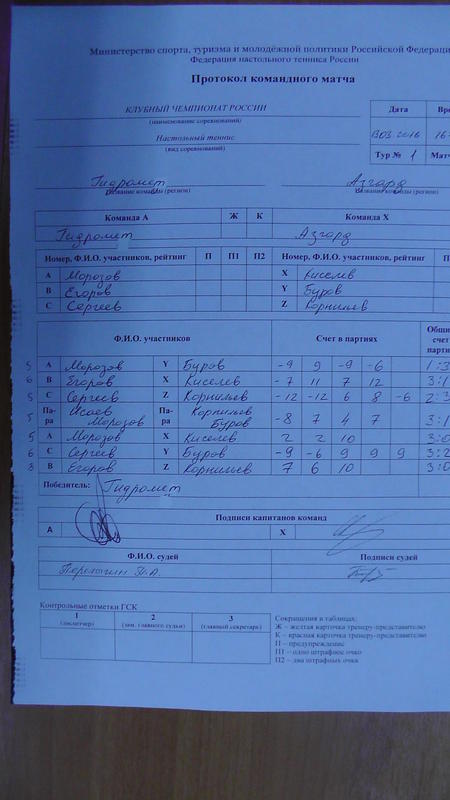 Министерство спорта, туризма и молодёжной политики Российской Федерац
Федерация настольного тенниса России
Протокол командного матча
КЛУБНЫЙ ЧЕМПИОНАТ РОССИИ
(наименование соревнований)
Настольный теннис
(вид соревнований)
Дата Вре
Тур № 1 Матч
Гидромет Азгард
название команды (регион) название команды (регион)
Команда А Ж К Команда Х
Гидромет Азгард
Номер, Ф.И.О. участников, рейтинг П П1 П2 Номер, Ф.И.О. участников, рейтинг П
А Морозов X Киселев
В Егоров Y Буров
С Сергеев Z Корнильев
Ф.И.О. участников Счет в партиях Общи счет парти
5 А Морозов Y Буров -9 9 -9 -6 1:3
6 В Егоров X Киселев -7 11 7 12 3:1
5 С Сергеев Z Корнильев -12 -12 6 8 -6 2:3
5 Па-ра Исаев Морозов Па-ра Корнильев Буров -8 7 4 7 3:1
5 А Морозов X Киселев 2 2 10 3:0
6 С Сергеев Y Буров -9 -6 9 9 9 3:2
3 В Егоров Z Корнильев 7 6 10 3:0
Победитель: Гидромет
Подписи капитанов команд
А Х
Ф.И.О. судей Подписи судей
Контрольные отметки ГСК
1 2 3
(диспетчер) (зам. главного судьи) (главный секретарь)
Сокращения в таблицах:
Ж – желтая карточка тренеру-представителю
К – красная карточка тренеру-представителю
П – предупреждение
П1 – одно штрафное очко
П2 – два штрафных очка